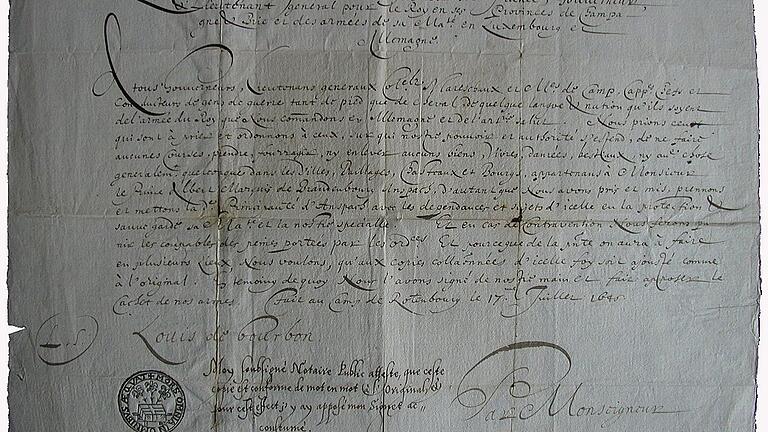 Lieutenant General pour le Roy en ses Provinces de Champa
gne Brie et des armées de sa Ma.té en Luxembourg &
Allemagne
A tous Gouverneurs, Lieutenans generaux Mareschaux et de Camp, Capp.nes et
Conducteurs de gens de guerre tant de pied que de cheval de quelque langue & nation qu'ils soyent
de l'armée du Roy que Nous comandons en Allemagne et de Nous prions ceux
qui sont à prier et ordonnons à ceux, sur qui nostre pouvoir et authorité s'estend, de ne faire
aucunes Courses, prendre, fourrager, ny enlever aucuns biens, vivres, danrées, bestiaux, ny au.e chose
generalem.t quelconque dans les Villes, Villages, Chasteaux et Bourgs, appartenans à Monsieur
le Albert Marquis de Brandenbourg Anspach, d'autant que Nous avons pris et mis, prennons
et mettons lad.e Principauté d'Anspach avec les dependances et sujets d'icelle en la protection &
sauvegarde sa Ma.té et la nostre specialle. Et en cas de Contravention Nous ferons pu
nir les coupables des peines portées par les Et pource que de la on aura à faire
en plusieurs Lieux Nous voulons, qu'aux copies collationnées d'icelle foy soit ajoutée comme
à l'original. En temoing de quoy Nous l'avons signé de nostre main et fait apposer le
Cachet de nos armes. Fait au Camp de Rotenbourg le 17.me Juillet 1645
L.S. Louis de Bourbon
Moy soubsigné Notaire Public atteste, que ceste
copie est conforme de mot en mot à l'Original,
pour cest effect j'y ay apposé mon Signet ac-
coustumé.
Par Monseigneur
MORS OMNIA